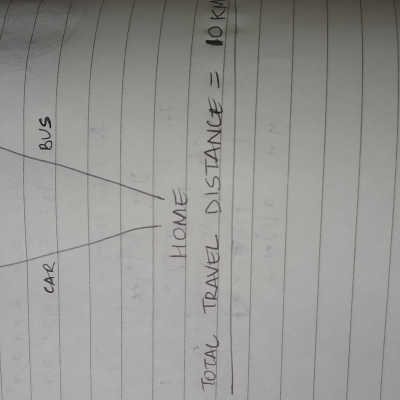 CAR BUS
HOME
TOTAL TRAVEL DISTANCE = 10 KM